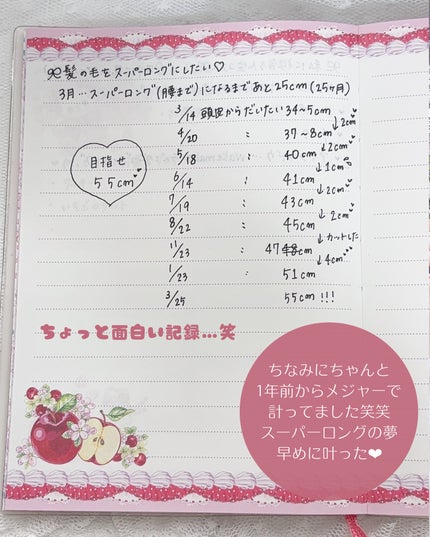 ୨୧髪の毛をスーパーロングにしたい♡
3月…スーパーロング(腰まで)になるまであと25cm(25ヶ月)
3/14 頭皮からだいたい34~5cm
↓2cm
4/20 : 37~8cm
↓2cm
5/18 : 40cm
↓1cm
6/14 : 41cm
↓2cm
7/19 : 43cm
↓2cm
8/22 : 45cm
↓カットした
11/23 : 47cm
↓4cm
1/23 : 51cm
3/25 55cm!!!
目指せ
55cm
ちょっと面白い記録...笑
ちなみにちゃんと
1年前からメジャーで
計ってました笑笑
スーパーロングの夢
早めに叶った❤